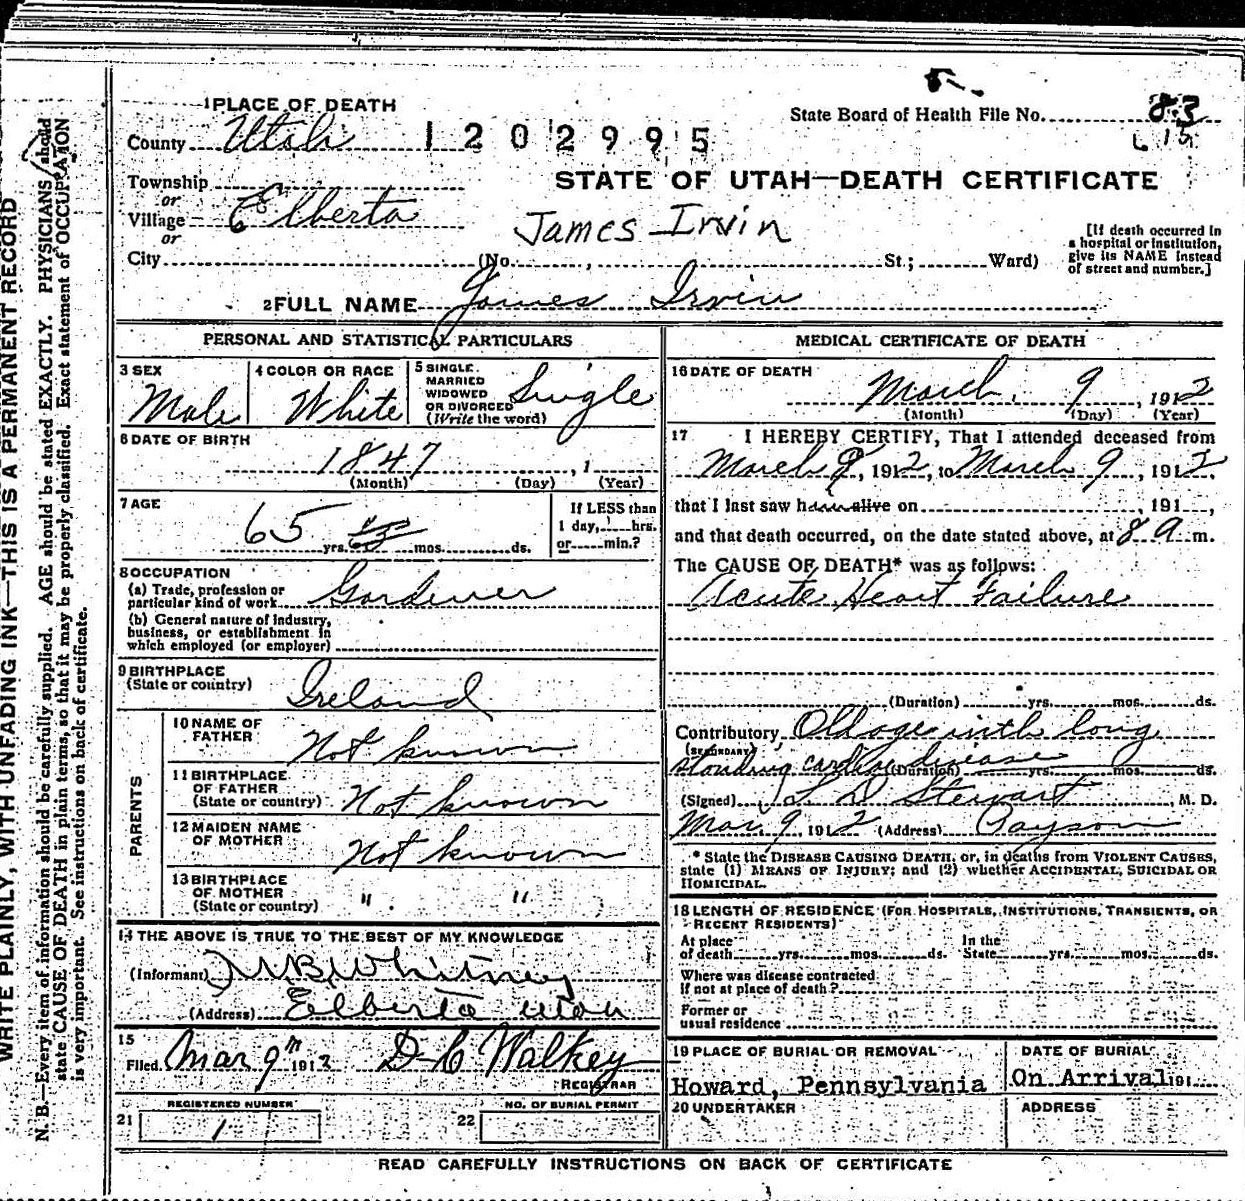 1 PLACE OF DEATH
State Board of Health File No. 83
County Utah 1202995
15
Township
or
Village Elberta
or
City (No. , St.; Ward)
STATE OF UTAH—DEATH CERTIFICATE
James Irvin
[If death occurred in
a hospital or institution,
give its NAME instead
of street and number.]
2 FULL NAME James Irvin
PERSONAL AND STATISTICAL PARTICULARS
3 SEX
Male
4 COLOR OR RACE
White
5 SINGLE,
MARRIED
WIDOWED
OR DIVORCED
(Write the word)
Single
6 DATE OF BIRTH
1847 , 1
(Month) (Day) (Year)
7 AGE
65 yrs. mos. ds.
If LESS than
1 day, hrs.
or min.?
8 OCCUPATION
(a) Trade, profession or
particular kind of work Gardener
(b) General nature of industry,
business, or establishment in
which employed (or employer)
9 BIRTHPLACE
(State or country) Ireland
PARENTS
10 NAME OF
FATHER Not known
11 BIRTHPLACE
OF FATHER
(State or country) Not known
12 MAIDEN NAME
OF MOTHER Not known
13 BIRTHPLACE
OF MOTHER
(State or country) " "
14 THE ABOVE IS TRUE TO THE BEST OF MY KNOWLEDGE
(Informant) Whitney
(Address) Elberta Utah
15
Filed Mar 9th 1912 D C Walkey
REGISTRAR
REGISTERED NUMBER
21 1
NO. OF BURIAL PERMIT
22
MEDICAL CERTIFICATE OF DEATH
16 DATE OF DEATH
March 9 , 1912
(Month) (Day) (Year)
17 I HEREBY CERTIFY, That I attended deceased from
March 9, 1912, to March 9, 1912
that I last saw h alive on , 191 ,
and that death occurred, on the date stated above, at 8 a m.
The CAUSE OF DEATH* was as follows:
Acute Heart Failure
(Duration) yrs. mos. ds.
Contributory Old age with long
(SECONDARY)
standing cardiac disease
(Duration) yrs. mos. ds.
(Signed) L D Stewart, M. D.
Mar 9, 1912 (Address) Payson
* State the DISEASE CAUSING DEATH, or, in deaths from VIOLENT CAUSES,
state (1) MEANS OF INJURY; and (2) whether ACCIDENTAL, SUICIDAL OR
HOMICIDAL.
18 LENGTH OF RESIDENCE (FOR HOSPITALS, INSTITUTIONS, TRANSIENTS, OR
RECENT RESIDENTS)
At place
of death yrs. mos. ds.
In the
State yrs. mos. ds.
Where was disease contracted
if not at place of death?
Former or
usual residence
19 PLACE OF BURIAL OR REMOVAL
Howard, Pennsylvania
DATE OF BURIAL
On Arrival 191
20 UNDERTAKER
ADDRESS
READ CAREFULLY INSTRUCTIONS ON BACK OF CERTIFICATE
WRITE PLAINLY, WITH UNFADING INK—THIS IS A PERMANENT RECORD
N. B.—Every item of information should be carefully supplied. AGE should be stated EXACTLY. PHYSICIANS should
state CAUSE OF DEATH in plain terms, so that it may be properly classified. Exact statement of OCCUPATION
is very important. See instructions on back of certificate.